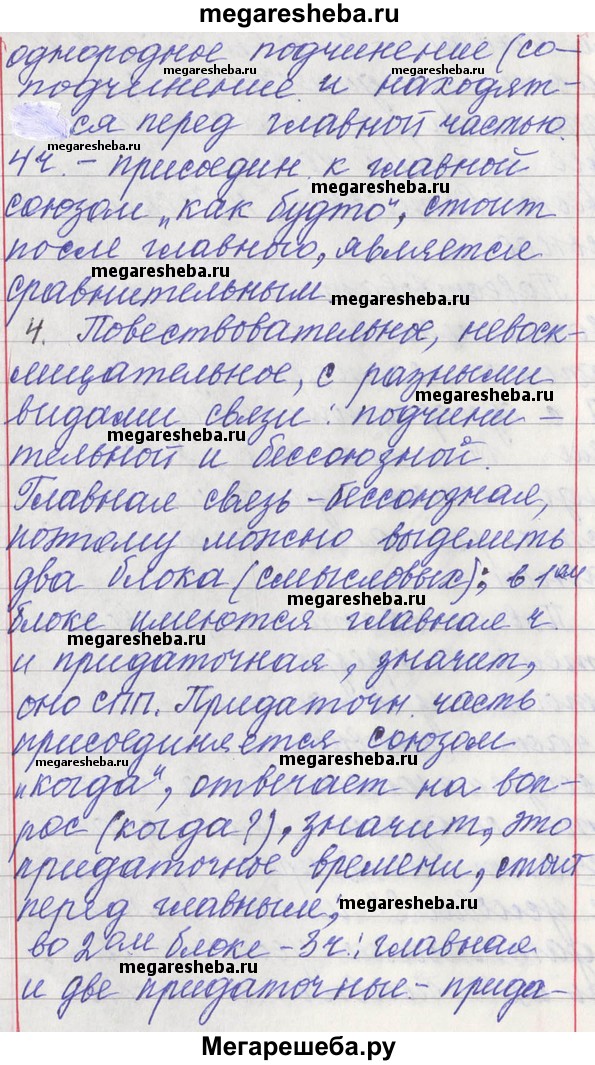 megaresheba.ru
однородное подчинение (со-
megaresheba.ru
megaresheba.ru
подчинение и находят-
ся перед главной частью.
megaresheba.ru
4ч. – присоедин. к главной
megaresheba.ru
союзом „как будто“, стоит
после главного, является
megaresheba.ru
сравнительным.
megaresheba.ru
4. Повествовательное, невоск-
лицательное, с разными
megaresheba.ru
видами связи: подчини-
megaresheba.ru
тельной и бессоюзной.
Главная связь – бессоюзная,
поэтому можно выделить
два блока (смысловых); в 1ом
megaresheba.ru
блоке имеются главная ч.
megaresheba.ru
и придаточная, значит,
оно СПП. Придаточн. часть
присоединяется союзом
megaresheba.ru
megaresheba.ru
„когда“, отвечает на воп-
рос (когда?), значит, это
придаточное времени, стоит
перед главным;
megaresheba.ru
во 2ом блоке – 3ч.: главная
megaresheba.ru
и две придаточные – прида-
Мегарешеба.ру